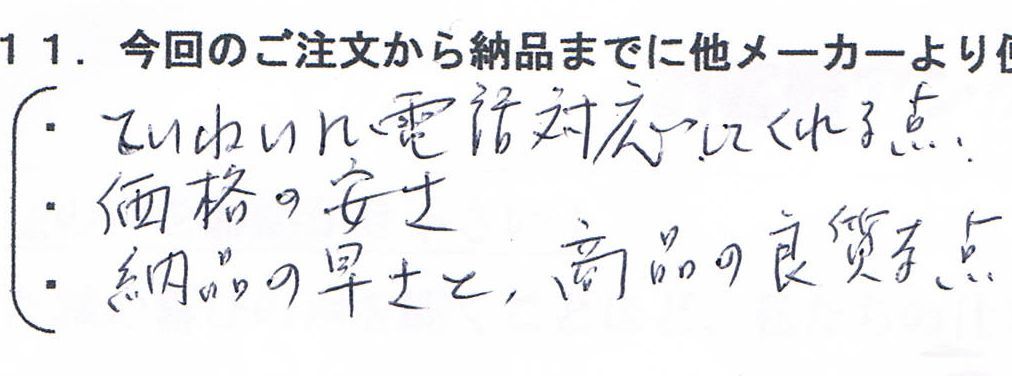 11. 今回のご注文から納品までに他メーカーより
・ていねいに電話対応してくれる点.
・価格の安さ
・納品の早さと, 商品の良質な点